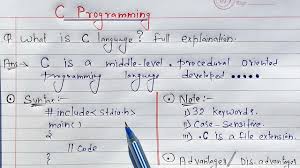 C Programming
Q. What is C language? Full explanation.
Ans→ C is a middle-level, procedural oriented
programming language developed .....
⊙ Syntax:-
# include<stdio.h>
main()
{
// Code
}
⊙ Note:-
i) 32 keywords.
ii) Case Sensitive.
iii) .C is a file extension.
Advantages / Disadvantages